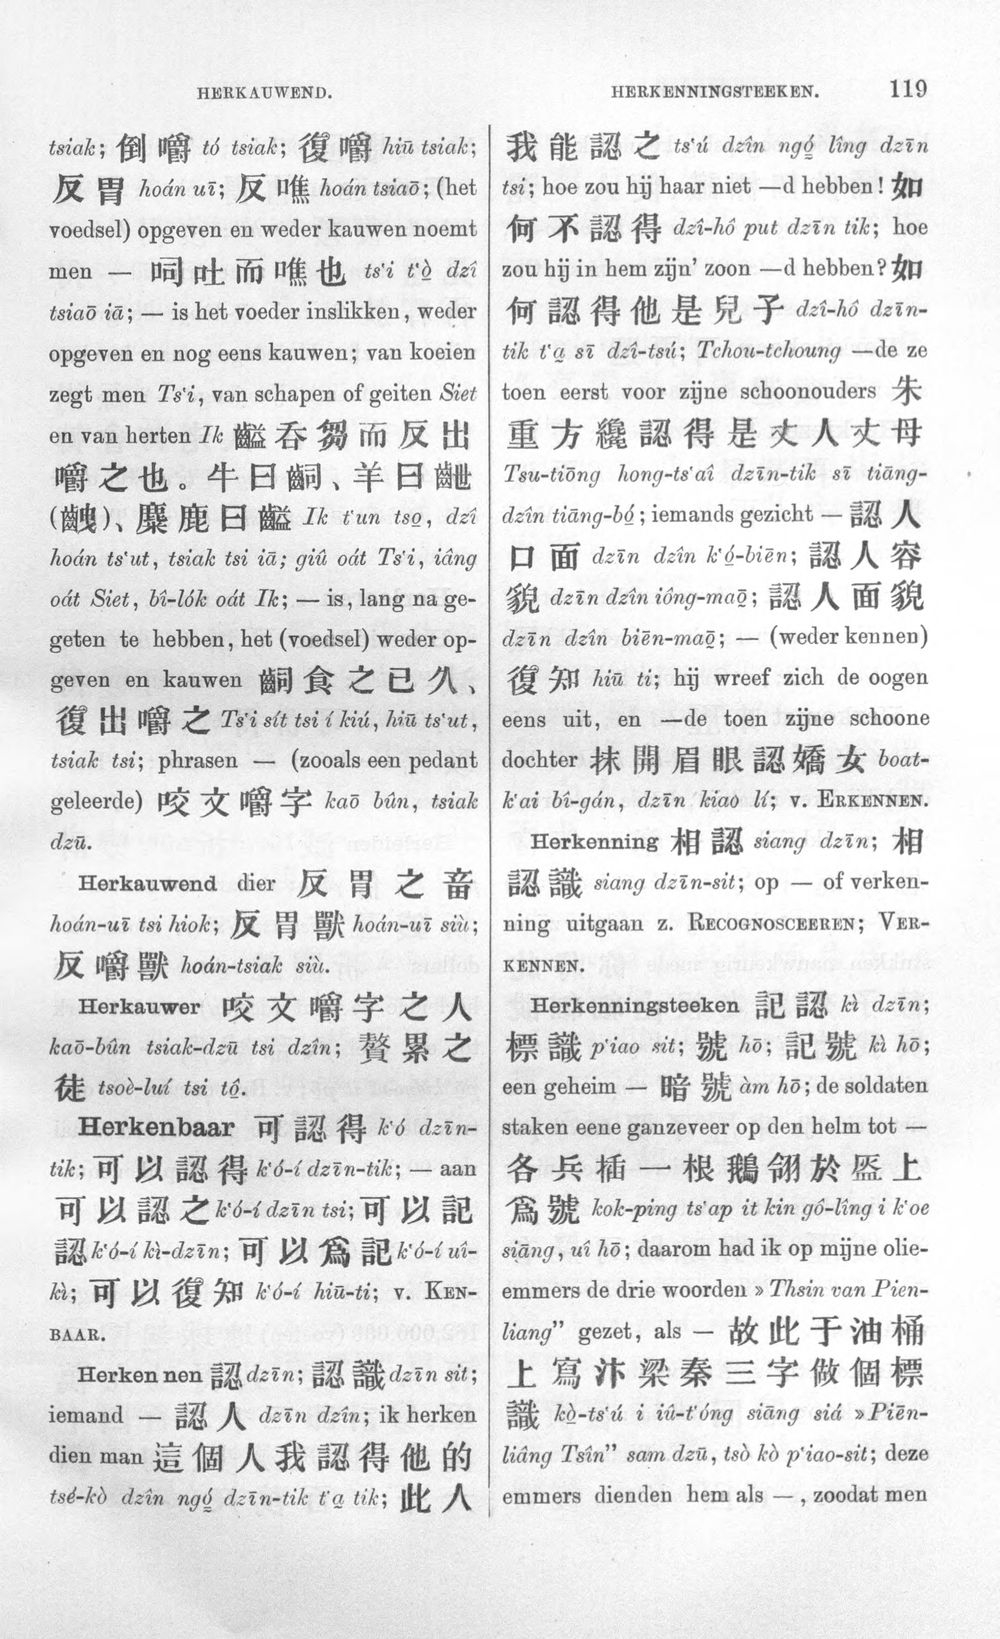 HERKAUWEND.
HERKENNINGSTEEKEN.
119
tsiak; 倒嚼 tó tsiak; 復嚼 hiū tsiak;
反胃 hoán uī; 反噍 hoán tsiaō; (het
voedsel) opgeven en weder kauwen noemt
men — 呞吐而噍也 ts‘i t‘ò̤ dzî
tsiaō iā; — is het voeder inslikken, weder
opgeven en nog eens kauwen; van koeien
zegt men Ts‘i, van schapen of geiten Siet
en van herten Ik 齸吞芻而反出
嚼之也。牛曰齝、羊曰齛
(齥)、麋鹿曰齸 Ik t‘un tso̤, dzî
hoán ts‘ut, tsiak tsi iā; giû oát Ts‘i, iâng
oát Siet, bî-lók oát Ik; — is, lang na ge-
geten te hebben, het (voedsel) weder op-
geven en kauwen 齝食之已久、
復出嚼之 Ts‘i sít tsi í kiú, hiū ts‘ut,
tsiak tsi; phrasen — (zooals een pedant
geleerde) 咬文嚼字 kaō bûn, tsiak
dzū.
Herkauwend dier 反胃之畜
hoán-uī tsi hiok; 反胃獸 hoán-uī siù;
反嚼獸 hoán-tsiak siù.
Herkauwer 咬文嚼字之人
kaō-bûn tsiak-dzū tsi dzîn; 贅累之
徒 tsoè-luí tsi tô̤.
Herkenbaar 可認得 k‘ó dzīn-
tik; 可以認得 k‘ó-í dzīn-tik; — aan
可以認之 k‘ó-í dzīn tsi; 可以記
認 k‘ó-í kì-dzīn; 可以爲記 k‘ó-í uî-
kì; 可以復知 k‘ó-í hiū-ti; v. KEN-
BAAR.
Herkennen 認 dzīn; 認識 dzīn sit;
iemand — 認人 dzīn dzîn; ik herken
dien man 這個人我認得他的
tsé-kò dzîn ngó̤ dzīn-tik t‘a̤ tik; 此人
我能認之 ts‘ú dzîn ngó̤ lîng dzīn
tsi; hoe zou hij haar niet —d hebben! 如
何不認得 dzî-hô put dzīn tik; hoe
zou hij in hem zijn’ zoon —d hebben? 如
何認得他是兒子 dzî-hô dzīn-
tik t‘a̤ sī dzî-tsú; Tchou-tchoung —de ze
toen eerst voor zijne schoonouders 朱
重方纔認得是丈人丈母
Tsu-tiōng hong-ts‘aî dzīn-tik sī tiāng-
dzîn tiāng-bó̤; iemands gezicht — 認人
口面 dzīn dzîn k‘ó̤-biēn; 認人容
貌 dzīn dzîn iông-maō̤; 認人面貌
dzīn dzîn biēn-maō̤; — (weder kennen)
復知 hiū ti; hij wreef zich de oogen
eens uit, en —de toen zijne schoone
dochter 抹開眉眼認嬌女 boat-
k‘ai bî-gán, dzīn kiao lí; v. ERKENNEN.
Herkenning 相認 siang dzīn; 相
認識 siang dzīn-sit; op — of verken-
ning uitgaan z. RECOGNOSCEEREN; VER-
KENNEN.
Herkenningsteeken 記認 kì dzīn;
標識 p‘iao sit; 號 hō; 記號 kì hō;
een geheim — 暗號 àm hō; de soldaten
staken eene ganzeveer op den helm tot —
各兵插一根鵝翎於盔上
爲號 kok-ping ts‘ap it kin gô-lîng i k‘oe
siāng, uî hō; daarom had ik op mijne olie-
emmers de drie woorden » Thsin van Pien-
liang” gezet, als — 故此于油桶
上寫汴梁秦三字做個標
識 kò̤-ts‘ú i iû-t‘óng siāng siá »Piēn-
liâng Tsîn” sam dzū, tsò kò p‘iao-sit; deze
emmers dienden hem als —, zoodat men